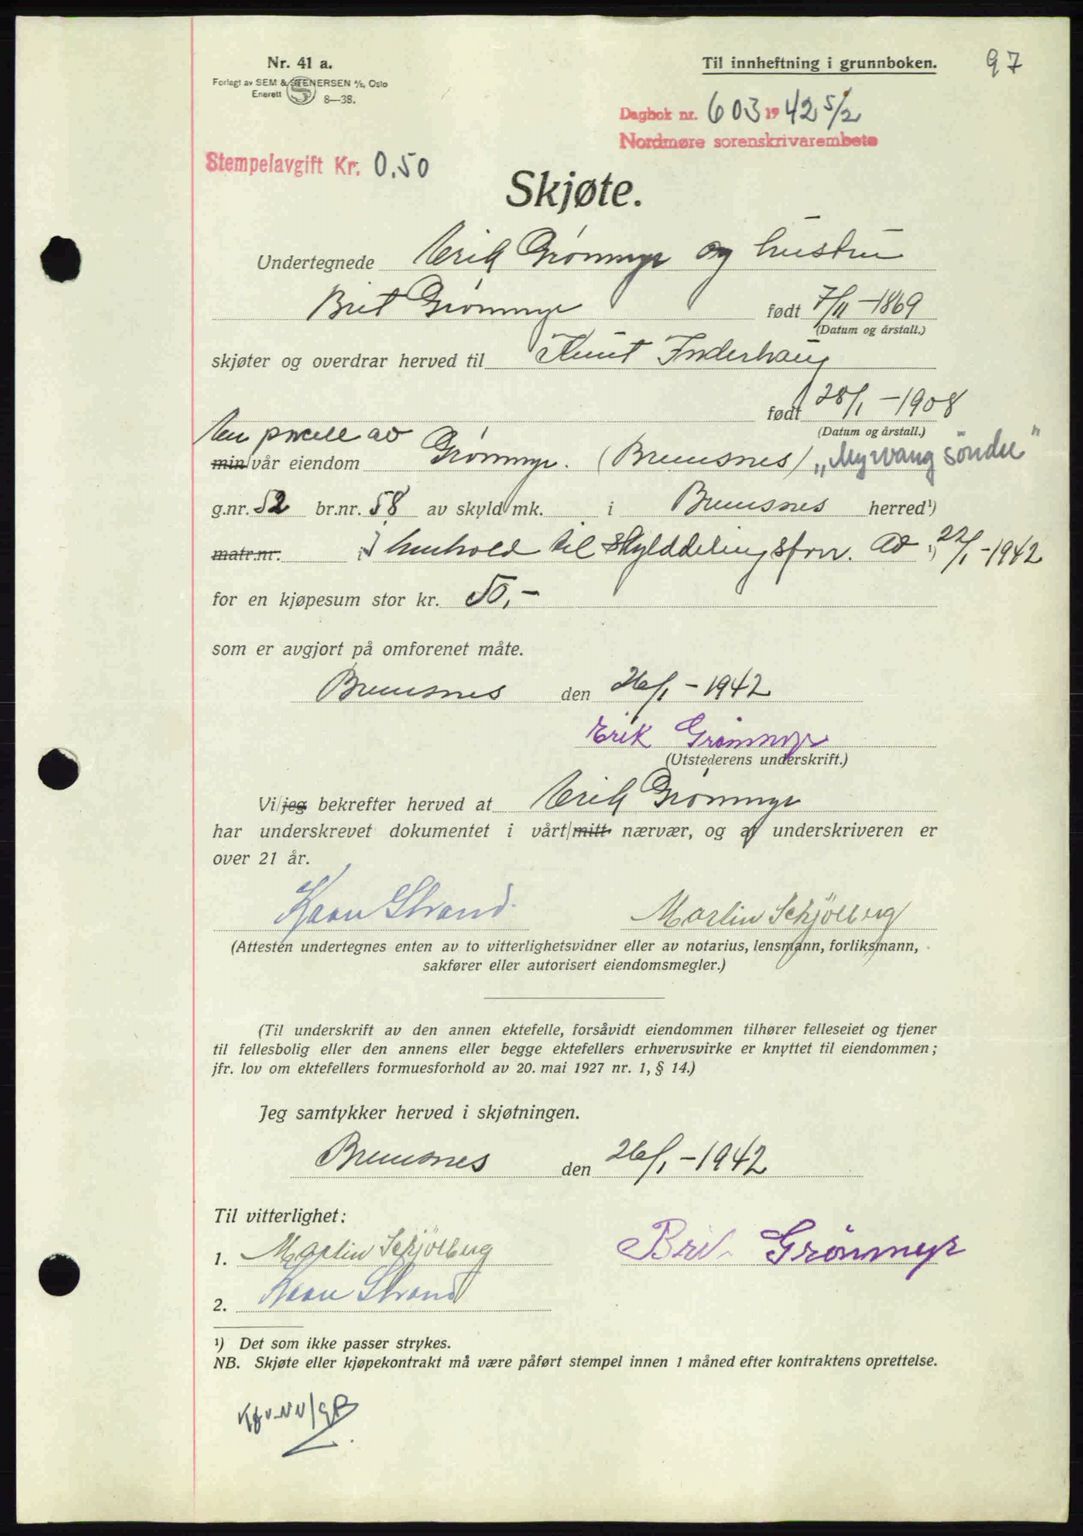 Nr. 41 a.
Forlagt av SEM & STENERSEN A/S, Oslo
Enerett 8—38.
Til innheftning i grunnboken.
97
Dagbok nr. 603 1942 5/2
Nordmøre sorenskrivarembete
Stempelavgift Kr. 0,50
Skjøte.
Undertegnede Erik Grønmyr og hustru
Brit Grønmyr født 7/11-1869
(Datum og årstall.)
skjøter og overdrar herved til Knut Inderhaug
født 28/1-1908
(Datum og årstall.)
en parcell av
min/vår eiendom Grønmyr. (Bremsnes) „Myrvang søndre"
g.nr. 52 br.nr. 58 av skyld mk. i Bremsnes herred¹)
matr.nr. i henhold til skylddelingsforr. av ¹) 22/1-1942
for en kjøpesum stor kr. 50,-
som er avgjort på omforenet måte.
Bremsnes den 26/1-1942
Erik Grønmyr
(Utstederens underskrift.)
Vi/jeg bekrefter herved at Erik Grønmyr
har underskrevet dokumentet i vårt/mitt nærvær, og at underskriveren er
over 21 år.
Kaan Strand Martin Schjølberg
(Attesten undertegnes enten av to vitterlighetsvidner eller av notarius, lensmann, forliksmann,
sakfører eller autorisert eiendomsmegler.)
(Til underskrift av den annen ektefelle, forsåvidt eiendommen tilhører felleseiet og tjener
til fellesbolig eller den annens eller begge ektefellers erhvervsvirke er knyttet til eiendommen;
jfr. lov om ektefellers formuesforhold av 20. mai 1927 nr. 1, § 14.)
Jeg samtykker herved i skjøtningen.
Bremsnes den 26/1-1942
Til vitterlighet:
1. Martin Schjølberg
Brit Grønmyr
2. Kaan Strand
¹) Det som ikke passer strykes.
NB. Skjøte eller kjøpekontrakt må være påført stempel innen 1 måned efter kontraktens oprettelse.